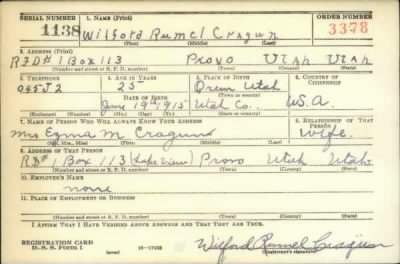 SERIAL NUMBER 1. NAME (Print) ORDER NUMBER
1138 Wilford Rumel Cragun 3378
(First) (Middle) (Last)
2. ADDRESS (Print)
RFD#1 Box 113 Provo Utah Utah
(Number and street or R. F. D. number) (Town) (County) (State)
3. TELEPHONE 4. AGE IN YEARS 5. PLACE OF BIRTH 6. COUNTRY OF CITIZENSHIP
045J2 25 Orem Utah
DATE OF BIRTH (Town or county)
June 19th, 1915 Utah Co., U.S.A.
(Exchange) (Number) (Mo.) (Day) (Yr.) (State or country)
7. NAME OF PERSON WHO WILL ALWAYS KNOW YOUR ADDRESS 8. RELATIONSHIP OF THAT PERSON
Mrs M. Cragun Wife
(Mr., Mrs., Miss) (First) (Middle) (Last)
9. ADDRESS OF THAT PERSON
RD#1 Box 113 (Lake View) Provo Utah Utah
(Number and street or R. F. D. number) (Town) (County) (State)
10. EMPLOYER'S NAME
none
11. PLACE OF EMPLOYMENT OR BUSINESS
(Number and street or R. F. D. number) (Town) (County) (State)
I AFFIRM THAT I HAVE VERIFIED ABOVE ANSWERS AND THAT THEY ARE TRUE.
REGISTRATION CARD
D. S. S. Form 1 Wilford Rumel Cragun
(Registrant's signature)